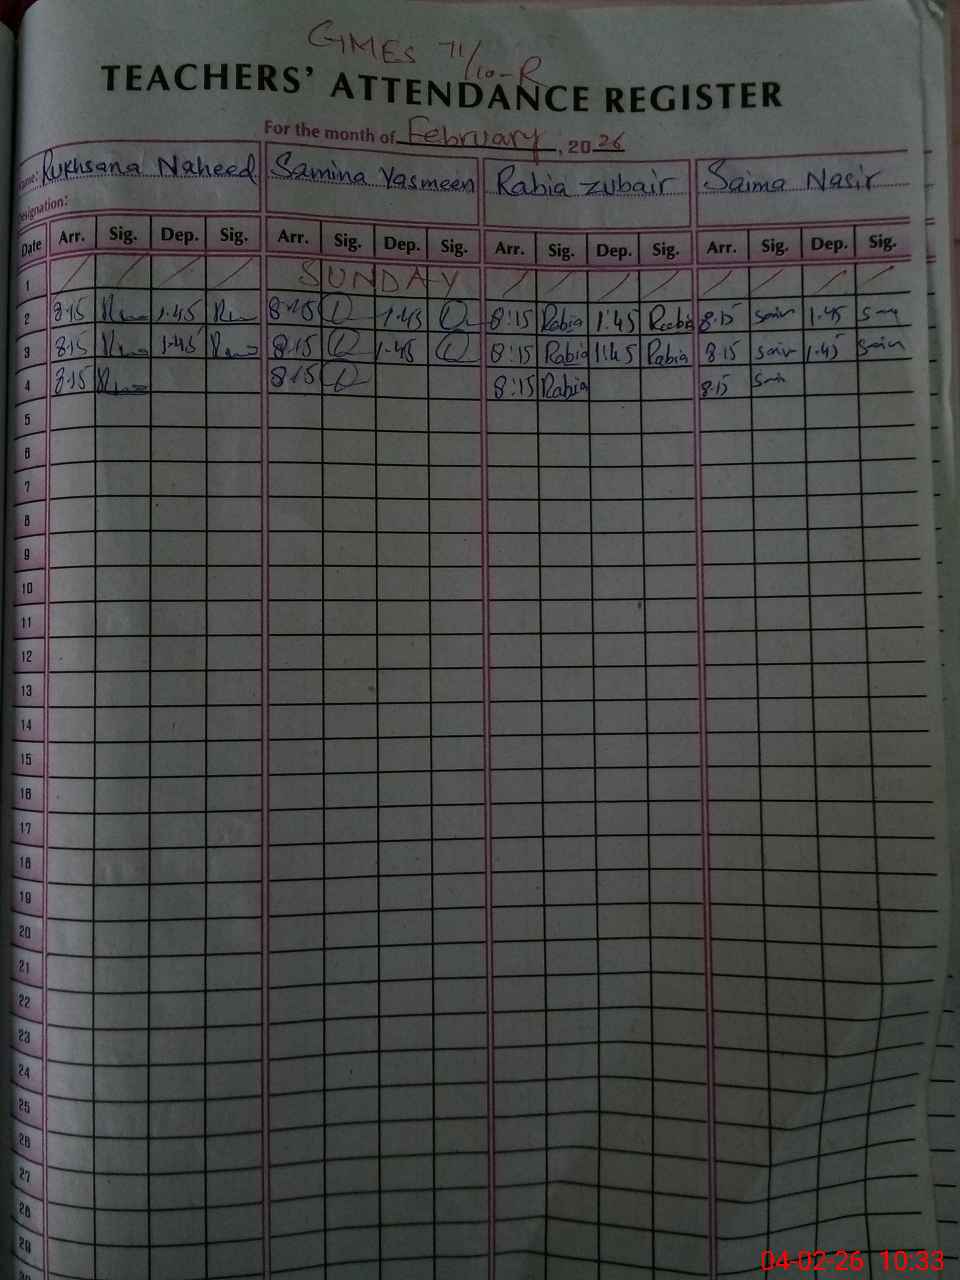 GMES 71/10-R
TEACHERS' ATTENDANCE REGISTER
For the month of February, 2026
Name: Rukhsana Naheed Samina Yasmeen Rabia zubair Saima Nasir
Designation:
Date Arr. Sig. Dep. Sig. Arr. Sig. Dep. Sig. Arr. Sig. Dep. Sig. Arr. Sig. Dep. Sig.
1 SUNDAY
2 8:15 1.45 8:15 1.45 8:15 Rabia 1:45 Rabia 8.15 1.45
3 8:15 1.45 8:15 1.45 8:15 Rabia 1:45 Rabia 8.15 1.45
4 8:15 8:15 8:15 Rabia 8.15
5
6
7
8
9
10
11
12
13
14
15
16
17
18
19
20
21
22
23
24
25
26
27
28
29
30
04-02-26 10:33